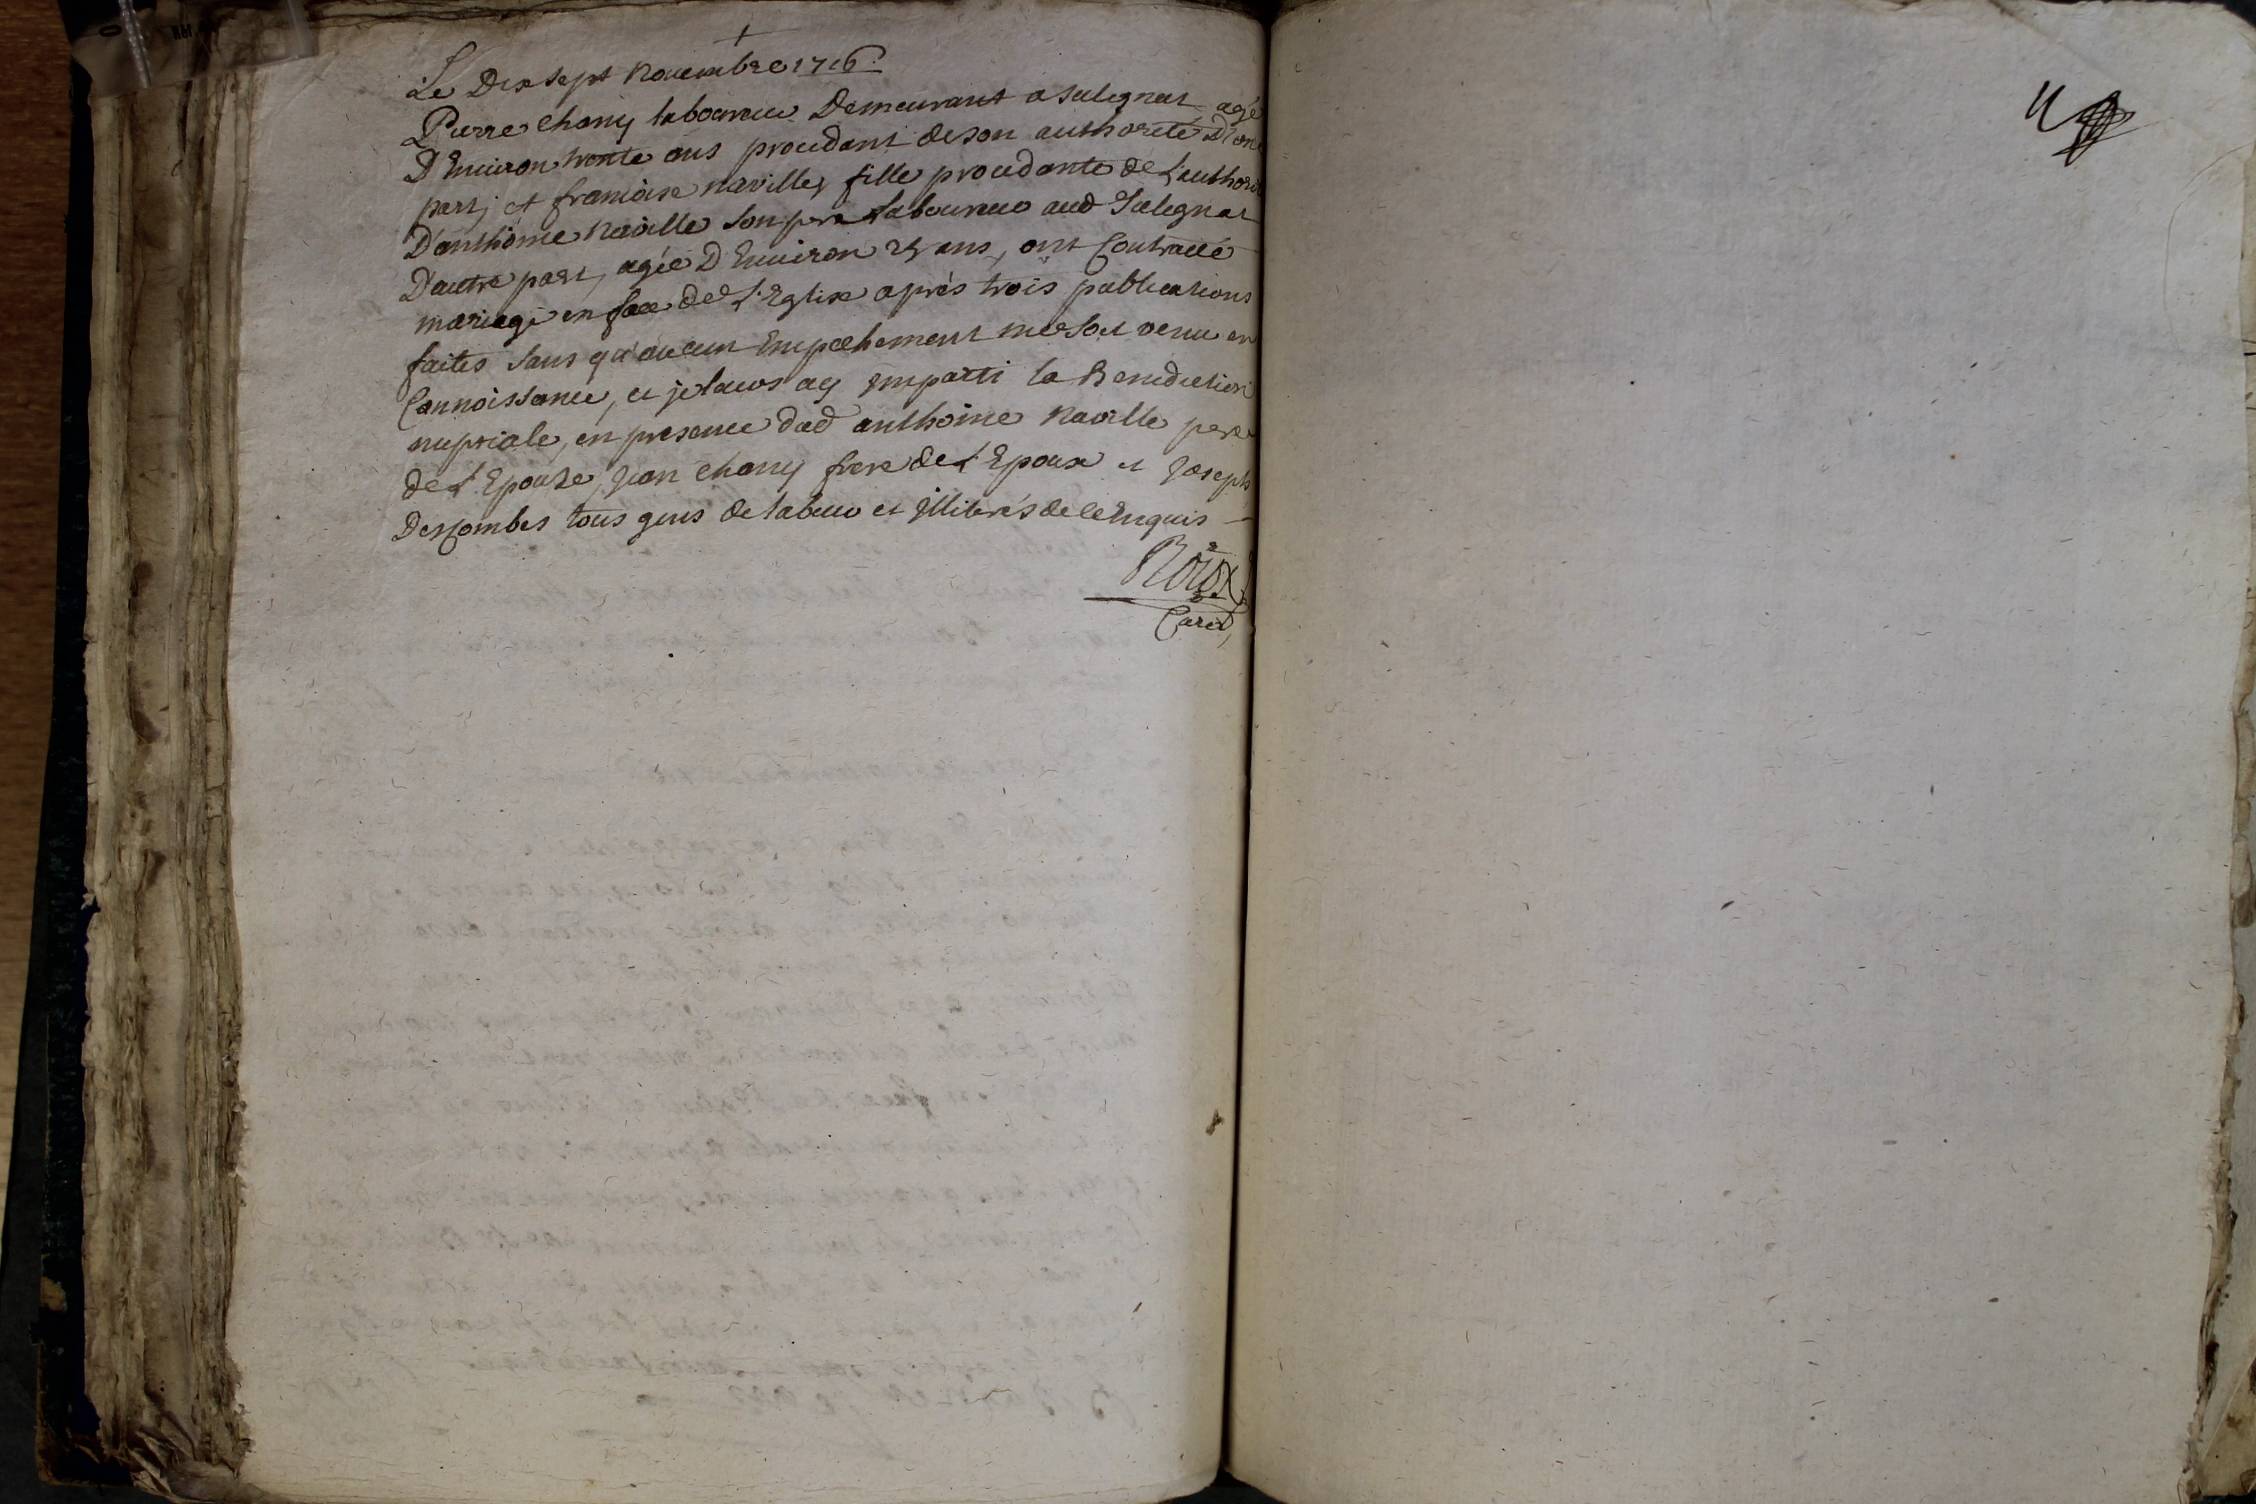 Le Dix sept Novembre 1716.
Pierre Chany laboureur Demeurant a Salignat agé
D'Environ trente ans procedant de son authorité D'une
part, et francoise naville, fille procedante de L'authorité
D'anthoine Naville son pere Laboureur aud Salignat
D'autre part, agée D'Environ 25 ans, ont Contracté
mariage en face de L'Eglise après trois publications
faites sans qu'aucun Empechement me soit venu en
Connoissance, et je leurs ay imparti la Benediction
nuptiale, en presence dud anthoine Naville pere
de L'Epouse, Jean Chany frere de L'Epoux et Joseph
Descombes tous gens de labeur et illiterés de ce Enquis
Curé